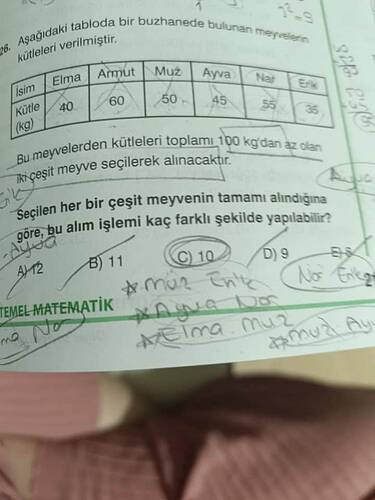 1
1²=9
26. Aşağıdaki tabloda bir buzhanede bulunan meyvelerin
kütleleri verilmiştir.
İsim Elma Armut Muz Ayva Nar Erik
Kütle (kg) 40 60 50 45 55 35
Bu meyvelerden kütleleri toplamı 100 kg'dan az olan
iki çeşit meyve seçilerek alınacaktır.
Ayva
Erik
Seçilen her bir çeşit meyvenin tamamı alındığına
göre, bu alım işlemi kaç farklı şekilde yapılabilir?
Ayva
A) 12 B) 11 C) 10 D) 9 E) 8
Nar Erik
Muz Erik
TEMEL MATEMATİK
Ayva Nar
Nar
Elma Muz
Muz Ayv